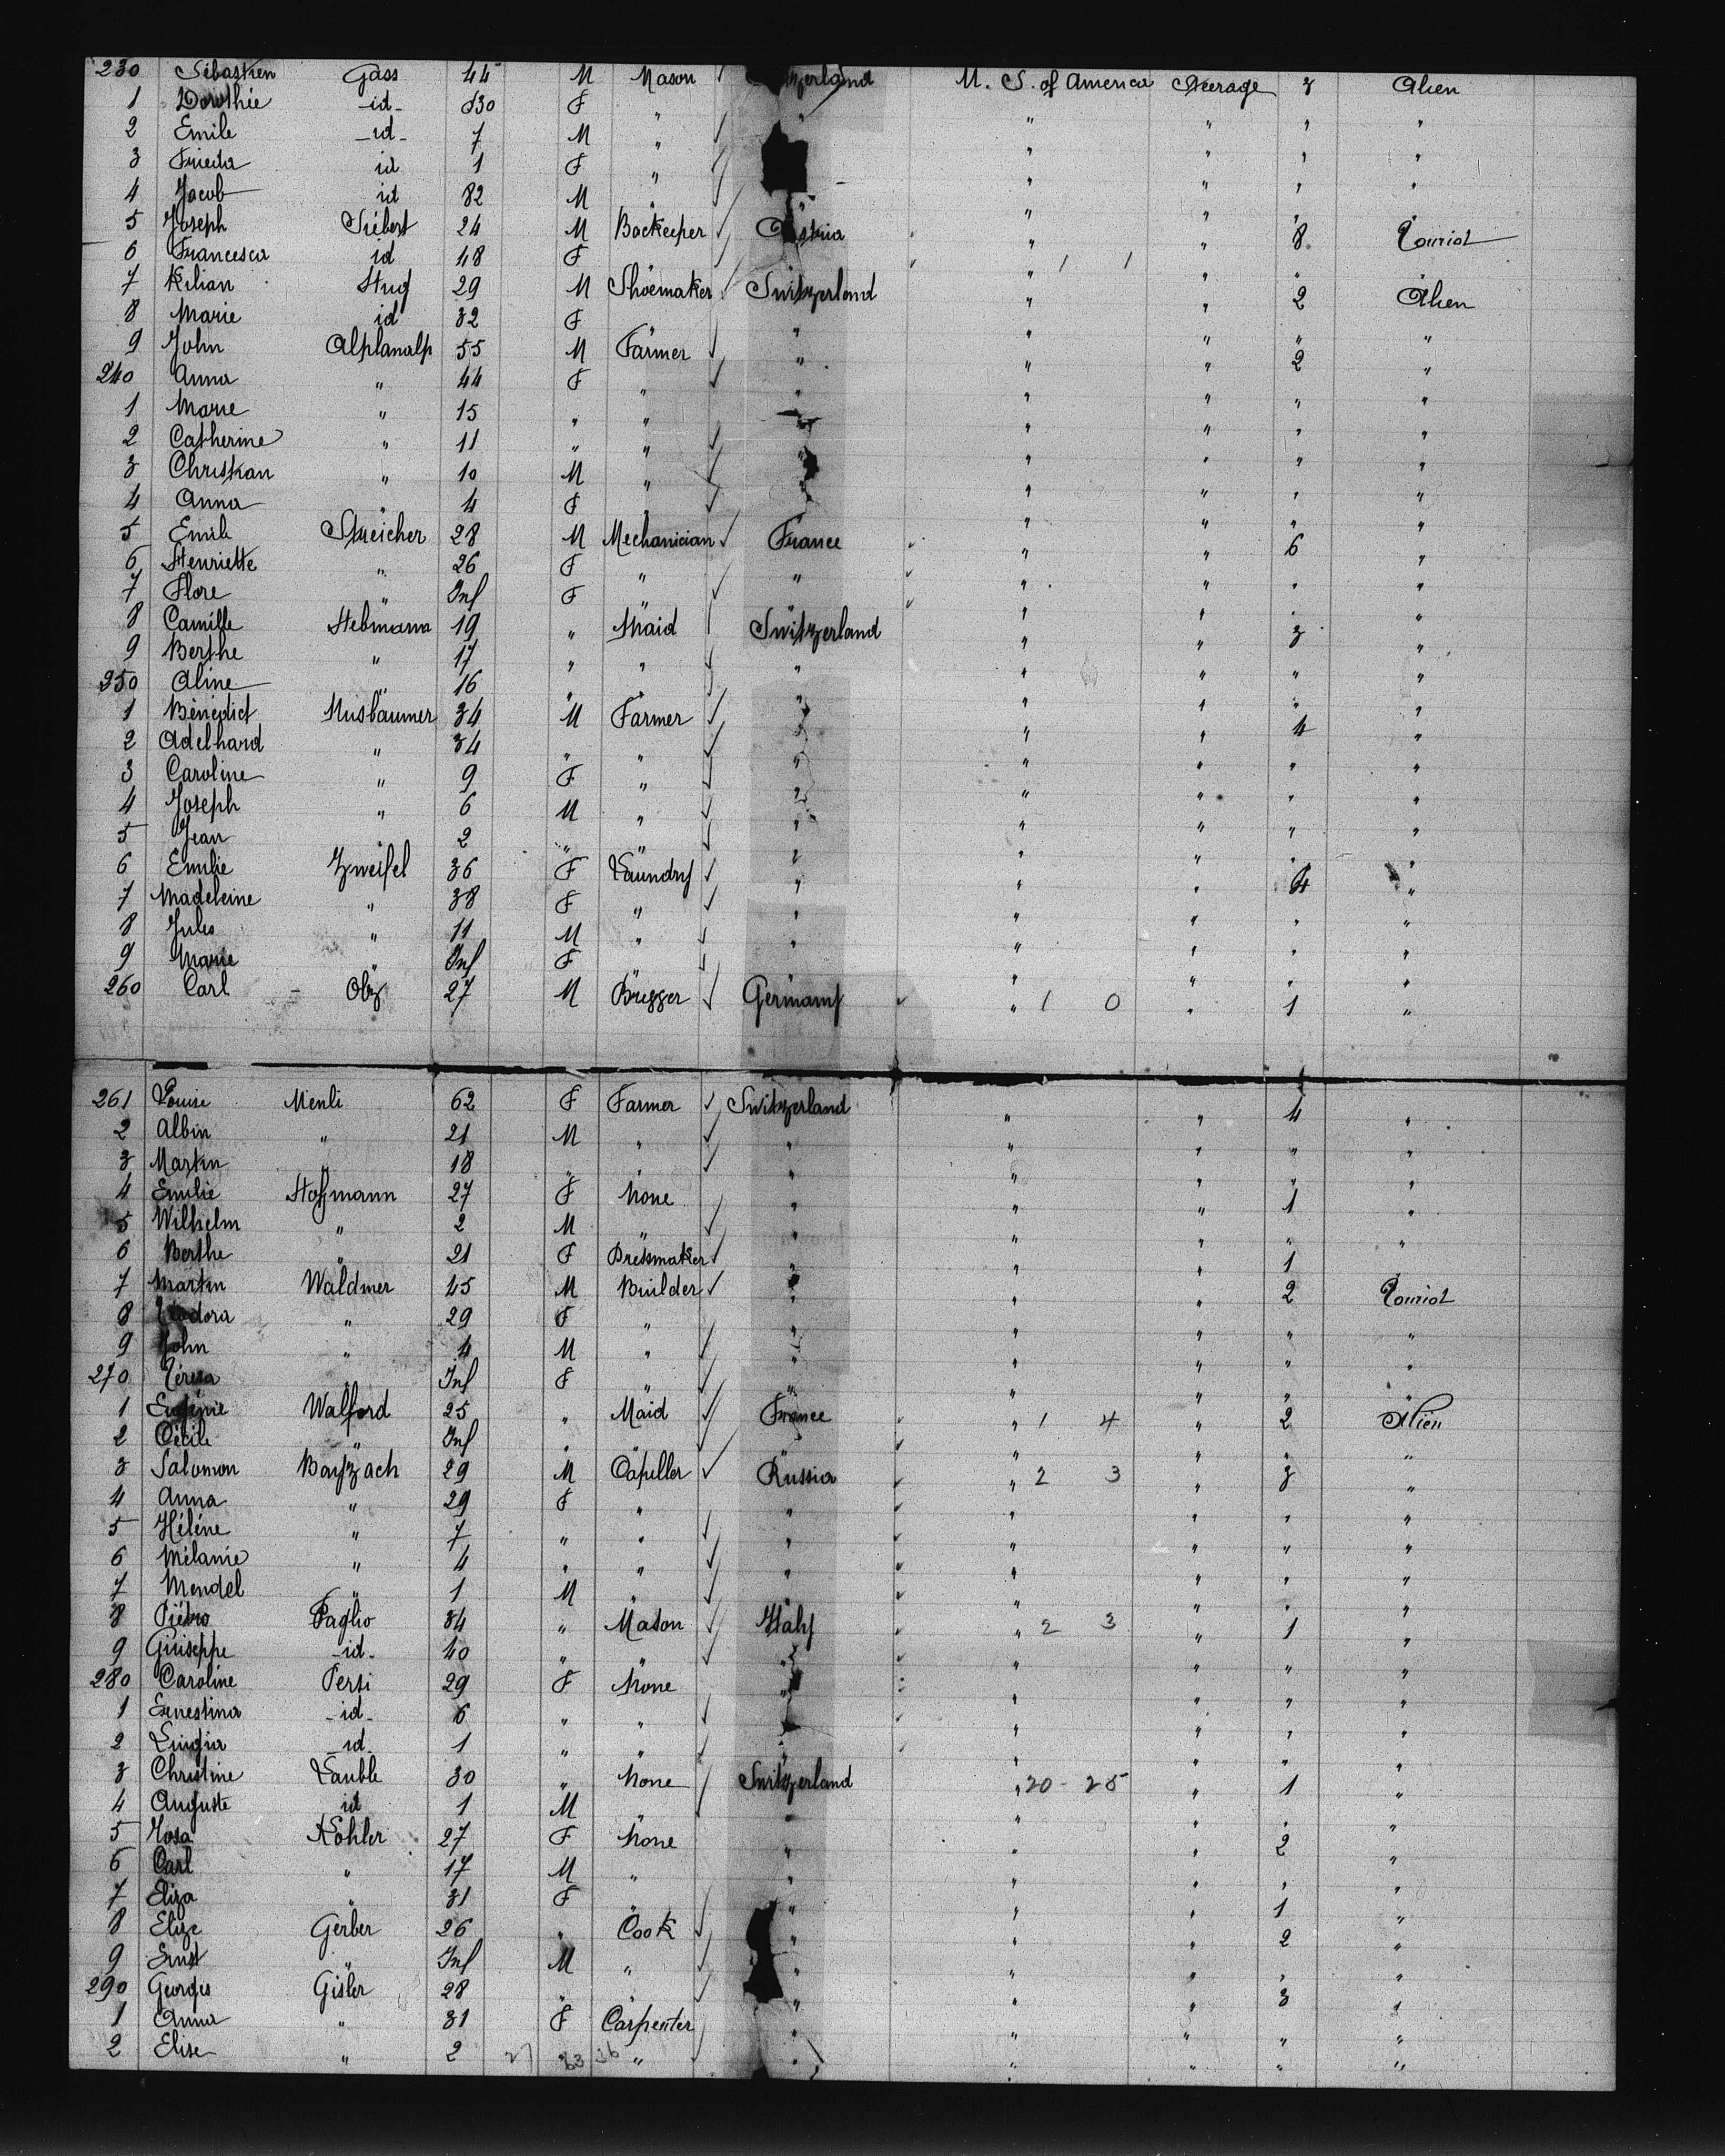 230 Sébastien Gass 44 M Mason Switzerland U. S. of America Steerage 3 Alien
1 Dorothée -id- 30 F " " " " " "
2 Emile -id- 7 M " " " " "
3 Frieda id 1 F " " " " "
4 Jacob id 82 M " " " " " "
5 Joseph Siebert 24 M Bockeeper Austria " " 8 Tourist
6 Francesca id 48 F " " 1 1 " "
7 Kilian Hug 29 M Shoemaker Switzerland " " 2 Alien
8 Marie id 32 F " " " " " "
9 John Alplanalp 55 M Farmer " " " 2 "
240 Anna " 44 F " " " " " "
1 Marie " 15 " " " " " " "
2 Catherine " 11 " " " " " " "
3 Christian " 10 M " " " " " "
4 Anna " 4 F " " " " " "
5 Emile Streicher 28 M Mechanician France " " 6 "
6 Henriette " 26 F " " " " " "
7 Flore " Inf F " " " " " "
8 Camille Hebmann 19 " Maid Switzerland " " 3 "
9 Berthe " 17 " " " " " " "
250 Aline " 16 " " " " " " "
1 Bénédict Nusbaumer 34 M Farmer " " " 4 "
2 Adelhard " 34 " " " " " " "
3 Caroline " 9 F " " " " " "
4 Joseph " 6 M " " " " " "
5 Jean " 2 " " " " " " "
6 Emilie Zweifel 36 F Laundry " " " 4 "
7 Madeleine " 38 F " " " " " "
8 Jules " 11 M " " " " " "
9 Marie " Inf F " " " " " "
260 Carl 27 M Germany " 1 0 " 1 "
261 Louise Menli 62 F Farmer Switzerland " " 4 "
2 Albin " 21 M " " " " " "
3 Martin " 18 " " " " " " "
4 Emilie Hofmann 27 F None " " " 1 "
5 Wilhelm " 2 M " " " " " "
6 Berthe " 21 F Dressmaker " " " 1
7 Martin Waldmer 45 M Builder " " " 2 Tourist
8 29 F " " " " " "
9 John " 4 M " " " " " "
270 Térésa " Inf F " " " " " "
1 Eugénie Walford 25 " Maid France " 1 4 " 2 Alien
2 Cécile " Inf " " " " " " "
3 Salomon Bayzach 29 M Capeller Russia " 2 3 " 3 "
4 Anna " 29 F " " " " " "
5 Hélène " 7 " " " " " " "
6 Mélanie " 4 " " " " " " "
7 Mendel " 1 M " " " " " "
8 Piétro Faglio 34 " Mason Italy " 2 3 " 1 "
9 Guiseppe -id- 40 " " " " " " "
280 Caroline Persi 29 F None " " " " "
1 Ernestina -id- 6 " " " " " " "
2 Luigia -id- 1 " " " " " " "
3 Christine Lauble 30 " None Switzerland " 20-25 " 1 "
4 Auguste id 1 M " " " " " "
5 Rosa Kohler 27 F None " " " 2 "
6 Carl " 17 M " " " " " "
7 Eliza " 31 F " " " " 1 "
8 Elize Gerber 26 " Cook " " " 2 "
9 Ernst " Inf M " " " " " "
290 Georges Gisler 28 " " " " " 3 "
1 Anna " 31 F Carpenter " " " " "
2 Elise " 2 " " " " " "